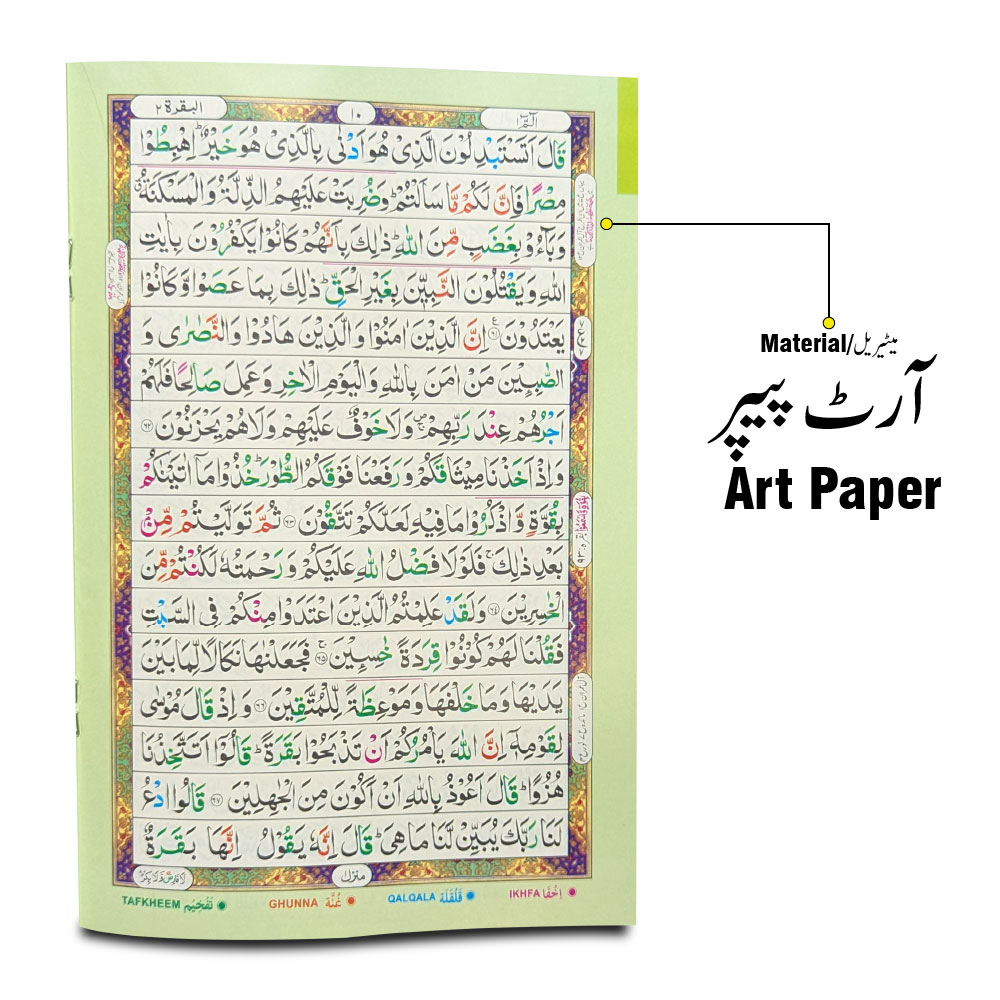 البقرة ٢
١٠
الٓمّٓ ١
قَالَ اَتَسْتَبْدِلُوْنَ الَّذِىْ هُوَ اَدْنٰى بِالَّذِىْ هُوَ خَيْرٌ ؕ اِهْبِطُوْا
مِصْرًا فَاِنَّ لَكُمْ مَّا سَاَلْتُمْ ؕ وَضُرِبَتْ عَلَيْهِمُ الذِّلَّةُ وَالْمَسْكَنَةُ
وَبَآءُوْ بِغَضَبٍ مِّنَ اللّٰهِ ؕ ذٰلِكَ بِاَنَّهُمْ كَانُوْا يَكْفُرُوْنَ بِاٰيٰتِ
اللّٰهِ وَيَقْتُلُوْنَ النَّبِيّٖنَ بِغَيْرِ الْحَقِّ ؕ ذٰلِكَ بِمَا عَصَوْا وَّكَانُوْا
يَعْتَدُوْنَ ۝٦١ اِنَّ الَّذِيْنَ اٰمَنُوْا وَالَّذِيْنَ هَادُوْا وَالنَّصٰرٰى وَ
الصّٰبِـِٕيْنَ مَنْ اٰمَنَ بِاللّٰهِ وَالْيَوْمِ الْاٰخِرِ وَعَمِلَ صَالِحًا فَلَهُمْ
اَجْرُهُمْ عِنْدَ رَبِّهِمْ ۚ وَلَا خَوْفٌ عَلَيْهِمْ وَلَا هُمْ يَحْزَنُوْنَ ۝٦٢
وَاِذْ اَخَذْنَا مِيْثَاقَكُمْ وَرَفَعْنَا فَوْقَكُمُ الطُّوْرَ ؕ خُذُوْا مَآ اٰتَيْنٰكُمْ
بِقُوَّةٍ وَّاذْكُرُوْا مَا فِيْهِ لَعَلَّكُمْ تَتَّقُوْنَ ۝٦٣ ثُمَّ تَوَلَّيْتُمْ مِّنْۢ
بَعْدِ ذٰلِكَ ۚ فَلَوْلَا فَضْلُ اللّٰهِ عَلَيْكُمْ وَرَحْمَتُهٗ لَكُنْتُمْ مِّنَ
الْخٰسِرِيْنَ ۝٦٤ وَلَقَدْ عَلِمْتُمُ الَّذِيْنَ اعْتَدَوْا مِنْكُمْ فِى السَّبْتِ
فَقُلْنَا لَهُمْ كُوْنُوْا قِرَدَةً خٰسِـِٕيْنَ ۝٦٥ فَجَعَلْنٰهَا نَكَالًا لِّمَا بَيْنَ
يَدَيْهَا وَمَا خَلْفَهَا وَمَوْعِظَةً لِّلْمُتَّقِيْنَ ۝٦٦ وَاِذْ قَالَ مُوْسٰى
لِقَوْمِهٖٓ اِنَّ اللّٰهَ يَاْمُرُكُمْ اَنْ تَذْبَحُوْا بَقَرَةً ؕ قَالُوْٓا اَتَتَّخِذُنَا
هُزُوًا ؕ قَالَ اَعُوْذُ بِاللّٰهِ اَنْ اَكُوْنَ مِنَ الْجٰهِلِيْنَ ۝٦٧ قَالُوا ادْعُ
لَنَا رَبَّكَ يُبَيِّنْ لَّنَا مَا هِىَ ؕ قَالَ اِنَّهٗ يَقُوْلُ اِنَّهَا بَقَرَةٌ
منزل
TAFKHEEM تَفْخِيْم
GHUNNA غُنَّه
QALQALA قَلْقَلَة
IKHFA اِخْفَا
Material/میٹیریل
آرٹ پیپر
Art Paper